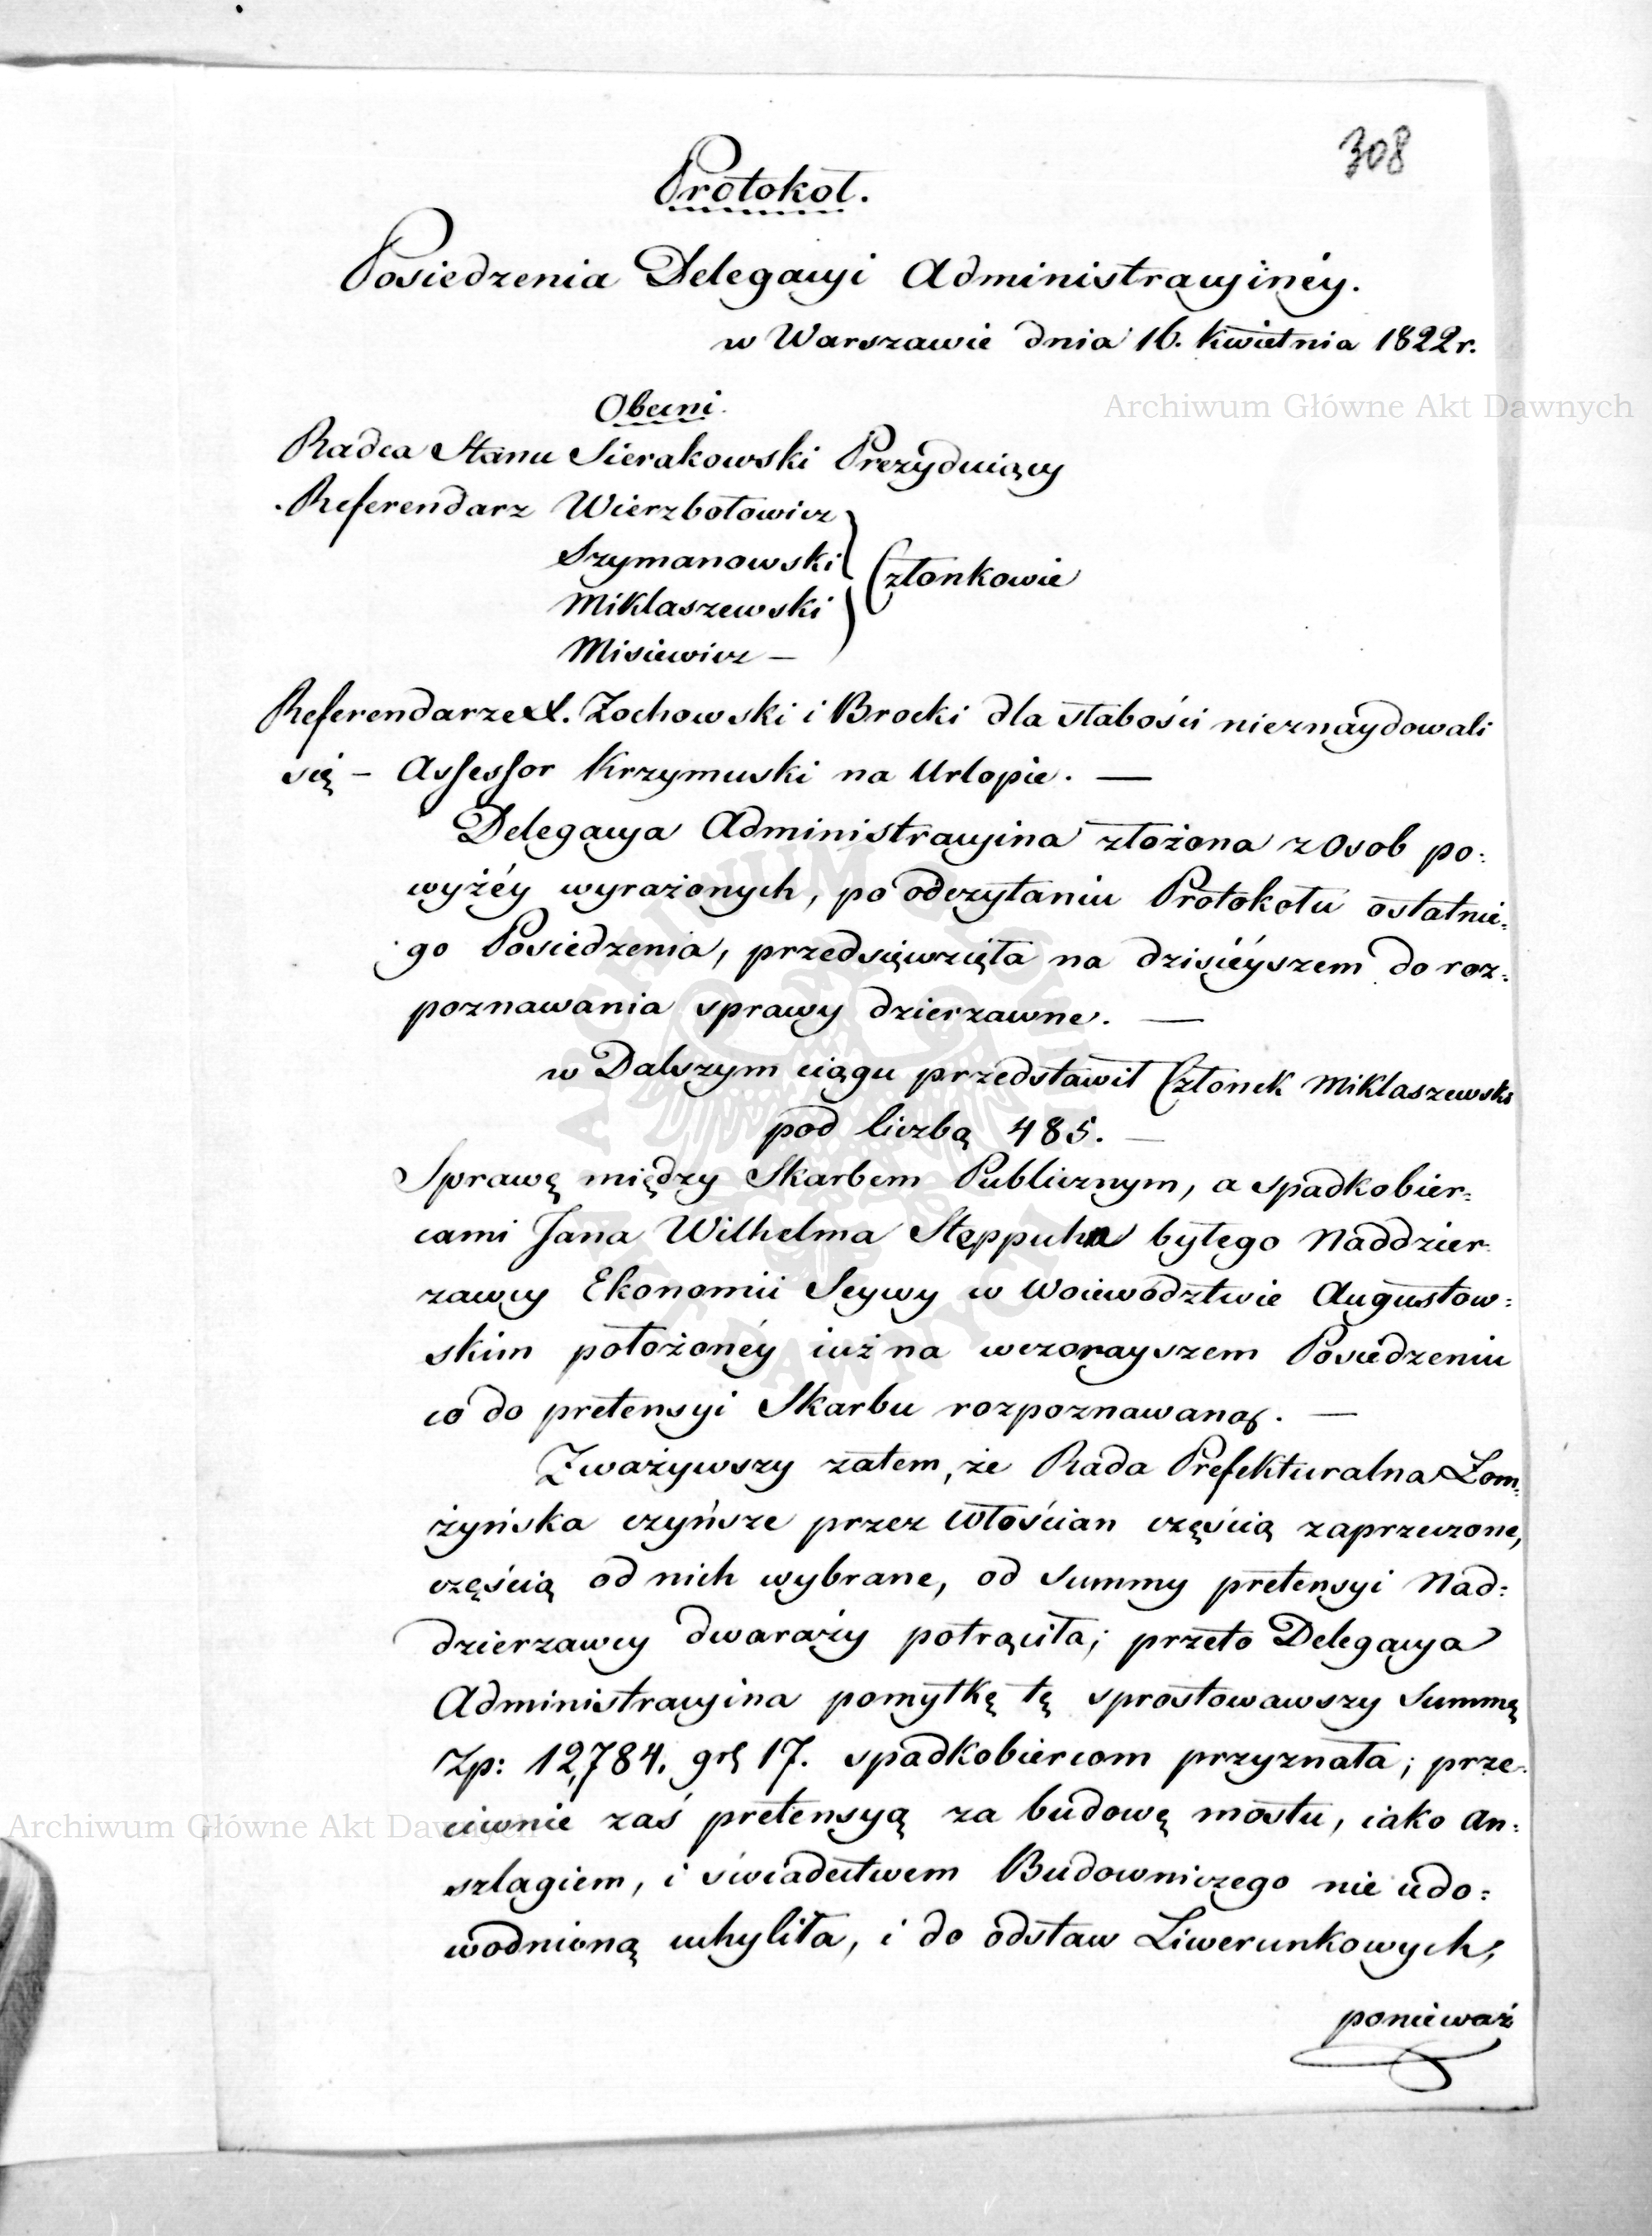 308
Protokoł.
Posiedzenia Delegacyi Administracyinéy.
w Warszawie dnia 16. Kwietnia 1822 r.
Archiwum Główne Akt Dawnych
Obecni.
Radca Stanu Sierakowski Prezyduiący
Referendarz Wierzbołowicz
Szymanowski
Członkowie
Miklaszewski
Misiewicz —
Referendarze X. Żochowski i Brocki dla słabości nieznaydowali
się – Assessor Krzymuski na Urlopie. —
Delegacya Administracyina złożona z Osob po:
wyżéy wyrażonych, po odczytaniu Protokołu ostatnie:
go Posiedzenia, przedsięwzięła na dzisiéyszem do roz:
poznawania sprawy dzierzawne. —
w Dalszym ciągu przedstawił Członek Miklaszewski
pod liczbą 485. —
Sprawę między Skarbem Publicznym, a spadkobier:
cami Jana Wilhelma Steppuhn byłego Naddzier:
zawcy Ekonomii Seywy w Woiewodztwie Augustow:
skim położonéy iuż na wczorayszem Posiedzeniu
co do pretensyi Skarbu rozpoznawaną. —
Zważywszy zatem, że Rada Prefekturalna Łom:
żyńska czyńsze przez Włościan częścią zaprzeczone,
częścią od nich wybrane, od summy pretensyi Nad:
dzierzawcy dwarazy potrąciła; przeto Delegacya
Administracyina pomyłkę tę sprostowawszy Summę
Zp: 12,784. gr 17. spadkobiercom przyznała; prze:
ciwnie zaś pretensyą za budowę mostu, iako An:
szlagiem, i świadectwem Budowniczego nie udo:
wodnioną uchyliła, i do odstaw Liwerunkowych,
ponieważ
Archiwum Główne Akt Dawnych
ARCHIWUM GŁÓWNE AKT DAWNYCH